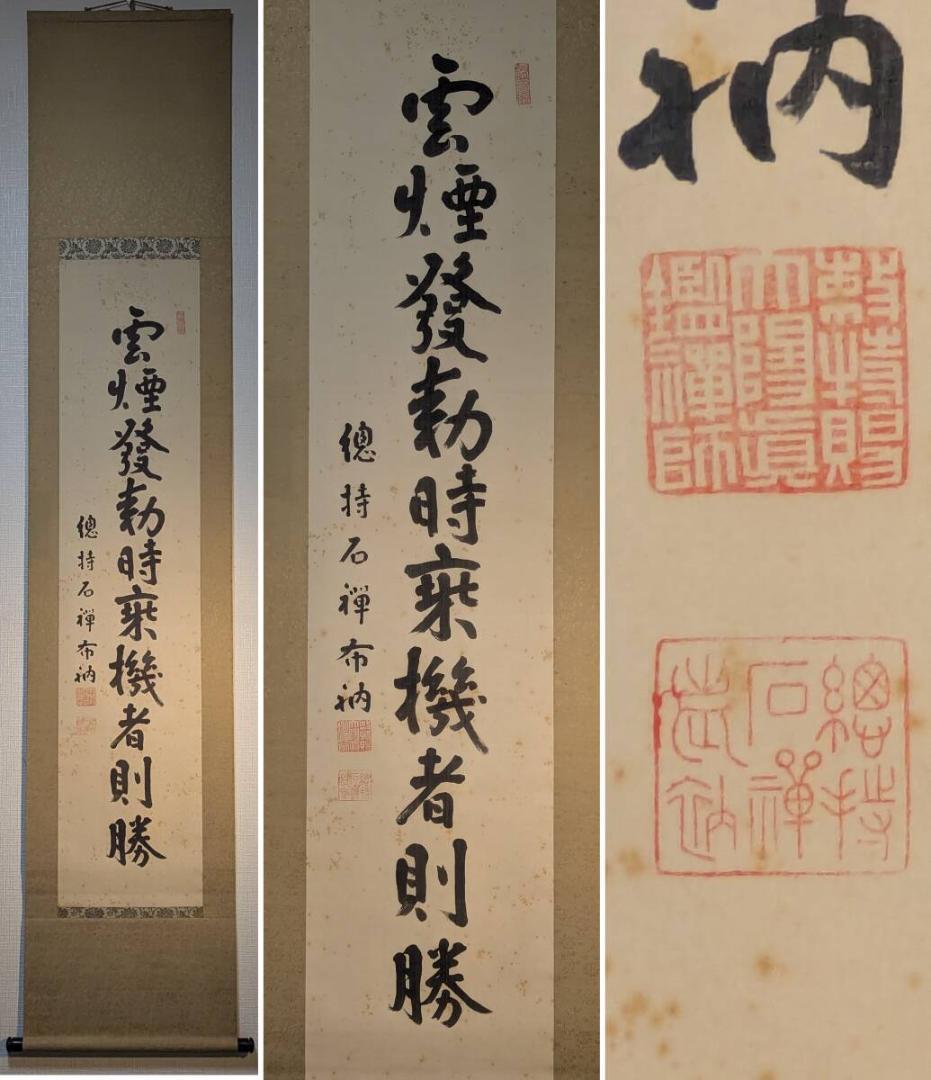 雲煙發動時乘機者則勝
總持石禪布衲
雲煙發動時乘機者則勝
總持石禪布衲
衲
勅特賜
大陽真
鑑禪師
總持
石禪
衲